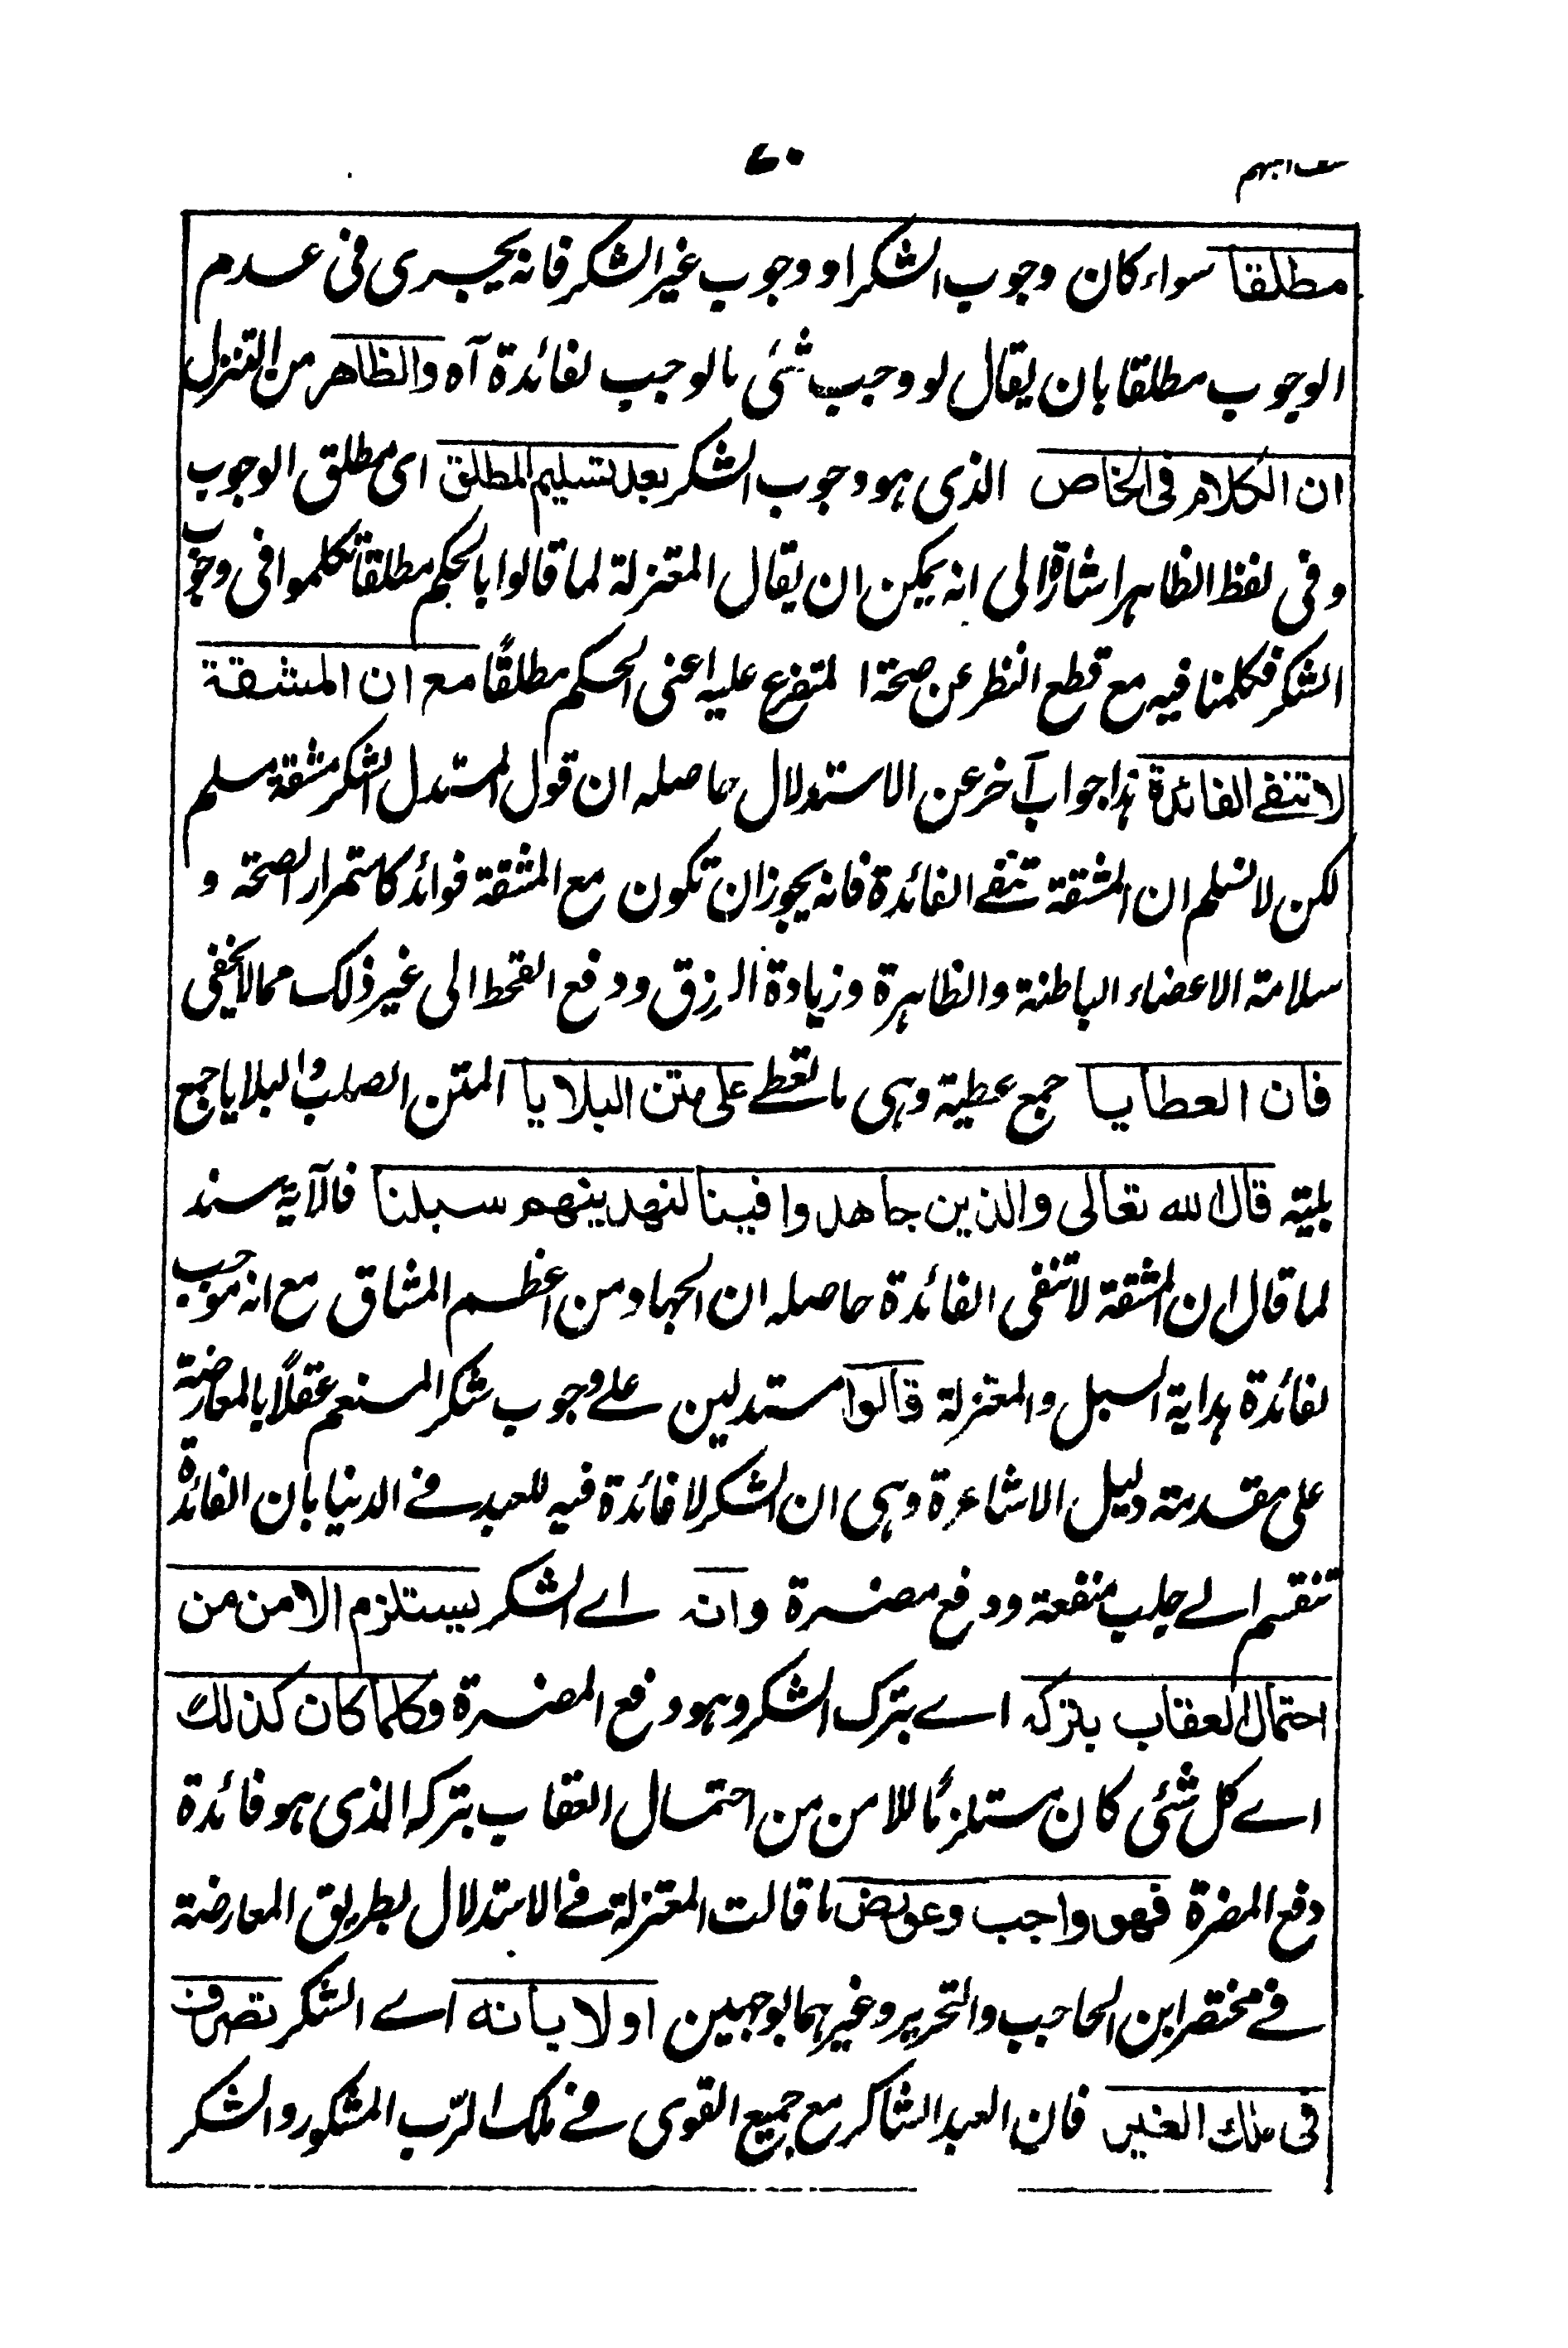 ٧٠
مطلقا سواء كان وجوب الشكر او وجوب غير الشكر فانه يجرى فى عدم
الوجوب مطلقا بان يقال لو وجب شئ ما لوجب لفائدة آه والظاهر من التنزل
ان الكلام فى الخاص الذى هو وجوب الشكر بعد تسليم المطلق اى مطلق الوجوب
و فى لفظ الظاهر اشارة الى انه يمكن ان يقال المعتزلة لما قالوا بالحكم مطلقا تكلموا فى وجوب
الشكر فكلمنا فيه مع قطع النظر عن صحة المتفرع عليه اعنى الحكم مطلقًا مع ان المشقة
لا تنفے الفائدة هذا جواب آخر عن الاستدلال حاصله ان قول المستدل الشكر مشقة مسلم
لكن لا نسلم ان المشقة تنفے الفائدة فانه يجوز ان تكون مع المشقة فوائد كاستمرار الصحة و
سلامة الاعضاء الباطنة والظاهرة وزيادة الرزق ودفع القحط الى غير ذلك مما لا يخفى
فان العطايا جمع عطية وهى ما تعطے على متن البلايا المتن الصلب والبلايا جمع
بلية قال الله تعالى والذين جاهدوا فينا لنهدينهم سبلنا فالآية سند
لما قال ان المشقة لا تنفى الفائدة حاصله ان الجهاد من اعظم المشاق مع انه موجب
لفائدة هداية السبل والمعتزلة قالوا مستدلين علے وجوب شكر المنعم عقلًا بالمعارضة
على مقدمة دليل الاشاعرة وهى ان الشكر لا فائدة فيه للعبد فے الدنيا بان الفائدة
تنقسم الے جلب منفعة ودفع مضرة وانه اے الشكر يستلزم الامن من
احتمال العقاب بتركه اے بترك الشكر وهو دفع المضرة وكلما كان كذلك
اے كل شئى كان مستلزمًا للامن من احتمال العقاب بتركه الذى هو فائدة
دفع المضرة فهو واجب وعورض ما قالت المعتزلة فے الاستدلال بطريق المعارضة
فے مختصر ابن الحاجب والتحرير وغيرهما بوجهين اولا بانه اے الشكر تصرف
فى ملك الغير فان العبد الشاكر مع جميع القوى فے ملك الرّب المشكور والشكر